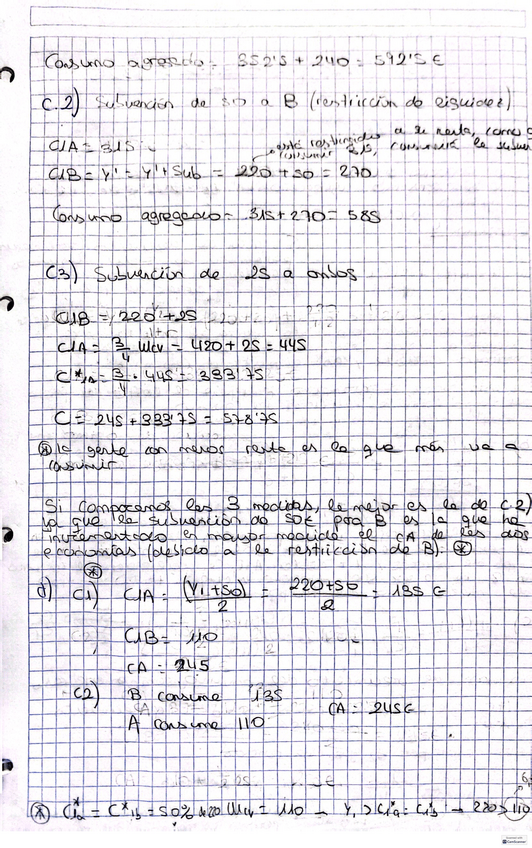 Consumo agregado = 352'5 + 240 = 592'5 €
C.2) Subvención de 50 a B (restricción de liquidez)
C1A = 315
está restringido a su renta, como
consumir 315, consumirá la subven
C1B = Y' = Y' + Sub = 220 + 50 = 270
Consumo agregado = 315 + 270 = 585
C3) Subvención de 25 a ambos
C1B = 220 + 25
C1A = 3/4 Wcv = 420 + 25 = 445
C*1A = 3/4 · 445 = 333'75
C = 245 + 333'75 = 578'75
* la gente con menos renta es la que más va a
consumir
Si comparamos las 3 medidas, la mejor es la de C.2)
ya que la subvención de 50€ para B es la que ha
incrementado en mayor medida el CA de las dos
economías (debido a la restricción de B). *
*
d) C1) C1A = (Y1 + 50)/2 = 220+50/2 = 135 €
C1B = 110
CA = 245
C2) B consume 135
CA = 245€
A consume 110
* C*1a = C*1b = 50% 220 Wcv = 110 → Y1 > C*1a = C*1b → 220 > 110